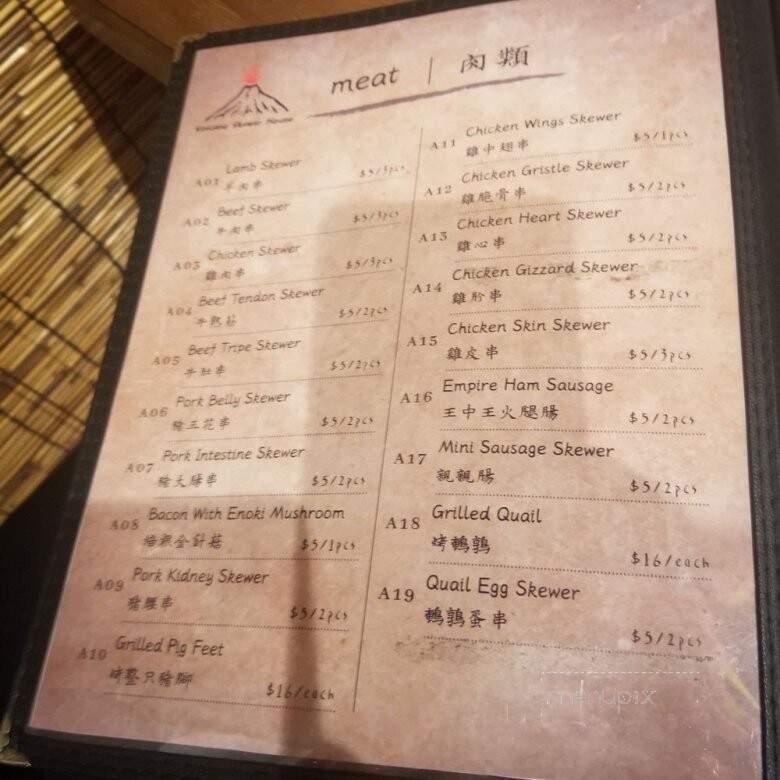 meat | 肉類
Volcano Skewer House
A01 Lamb Skewer
羊肉串 $5/3pcs
A02 Beef Skewer
牛肉串 $5/3pcs
A03 Chicken Skewer
雞肉串 $5/3pcs
A04 Beef Tendon Skewer
牛熟筋 $5/2pcs
A05 Beef Tripe Skewer
牛肚串 $5/2pcs
A06 Pork Belly Skewer
豬五花串 $5/2pcs
A07 Pork Intestine Skewer
豬大腸串 $5/2pcs
A08 Bacon With Enoki Mushroom
培根金針菇 $5/1pcs
A09 Pork Kidney Skewer
豬腰串 $5/2pcs
A10 Grilled Pig Feet
烤整只豬腳 $16/each
A11 Chicken Wings Skewer
雞中翅串 $5/1pcs
A12 Chicken Gristle Skewer
雞脆骨串 $5/2pcs
A13 Chicken Heart Skewer
雞心串 $5/2pcs
A14 Chicken Gizzard Skewer
雞胗串 $5/2pcs
A15 Chicken Skin Skewer
雞皮串 $5/3pcs
A16 Empire Ham Sausage
王中王火腿腸 $5/2pcs
A17 Mini Sausage Skewer
親親腸 $5/2pcs
A18 Grilled Quail
烤鵪鶉 $16/each
A19 Quail Egg Skewer
鵪鶉蛋串 $5/2pcs
menupix